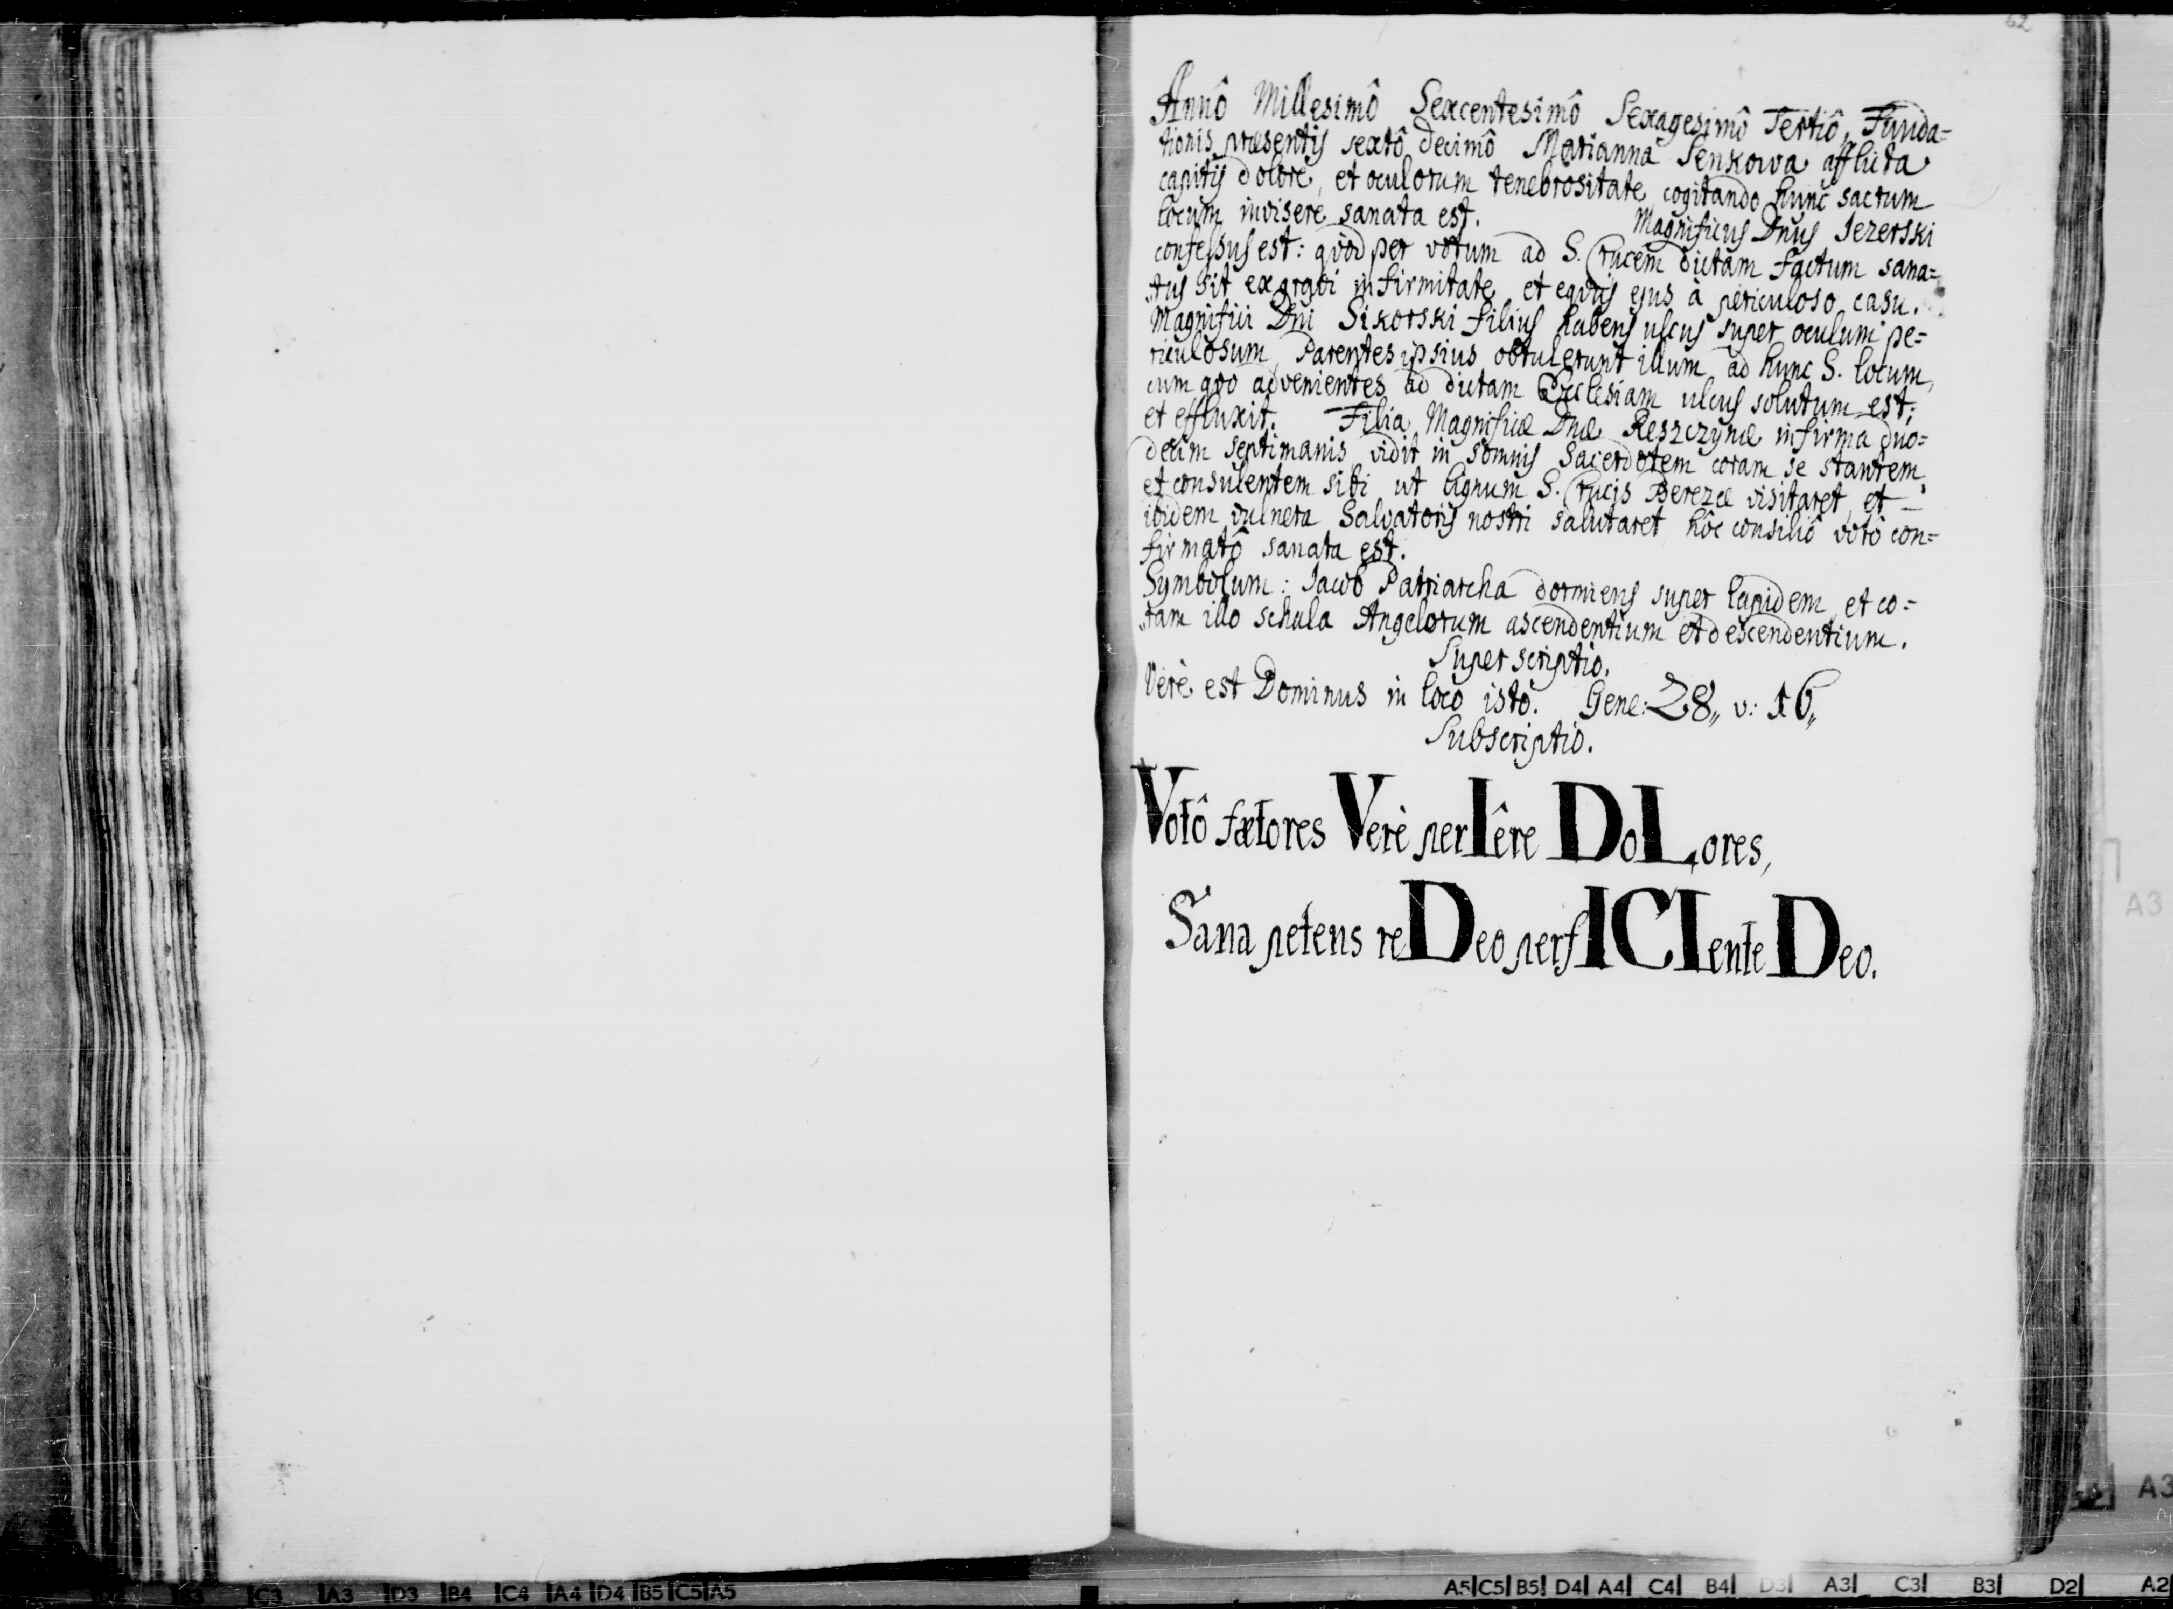 62
Annô Millesimô Sexcentesimô Sexagesimô Tertiô, Funda=
tionis præsentis sextô decimô Marianna Senkowa afflicta
capitis dolore, et oculorum tenebrositate, cogitando hunc sacrum
locum invisere sanata est. Magnificus Dnus Jezerski
confessus est: quod per votum ad S. Crucem dictam factum sana=
tus sit ex gravi infirmitate, et equus ejus à periculoso casu.
Magnifici Dni Sikorski filius habens ulcus super oculum pe=
riculosum, Parentes ipsius obtulerunt illum ad hunc S. locum,
cum quo advenientes ad dictam Ecclesiam ulcus solutum est;
et effluxit. Filia Magnificæ Dnæ Reszczynæ infirma duo=
decim septimanis vidit in somnis Sacerdotem coram se stantem,
et consulentem sibi ut lignum S. Crucis Berezæ visitaret, et
ibidem vulnera Salvatoris nostri salutaret hôc consiliô votô con=
firmatô sanata est.
Symbolum: Jacob Patriarcha dormiens super lapidem, et co=
ram illo schala Angelorum ascendentium et descendentium.
Superscriptio.
Verè est Dominus in loco isto. Gene: 28,, v: 16,,
Subscriptio.
Votô fætores Verè perIêre DoLores,
Sana petens reDeo perfICIente Deo.
A3
A3
C3 A3 D3 B4 C4 A4 D4 B5 C5 A5
A5 C5 B5 D4 A4 C4 B4 D3 A3 C3 B3 D2 A2